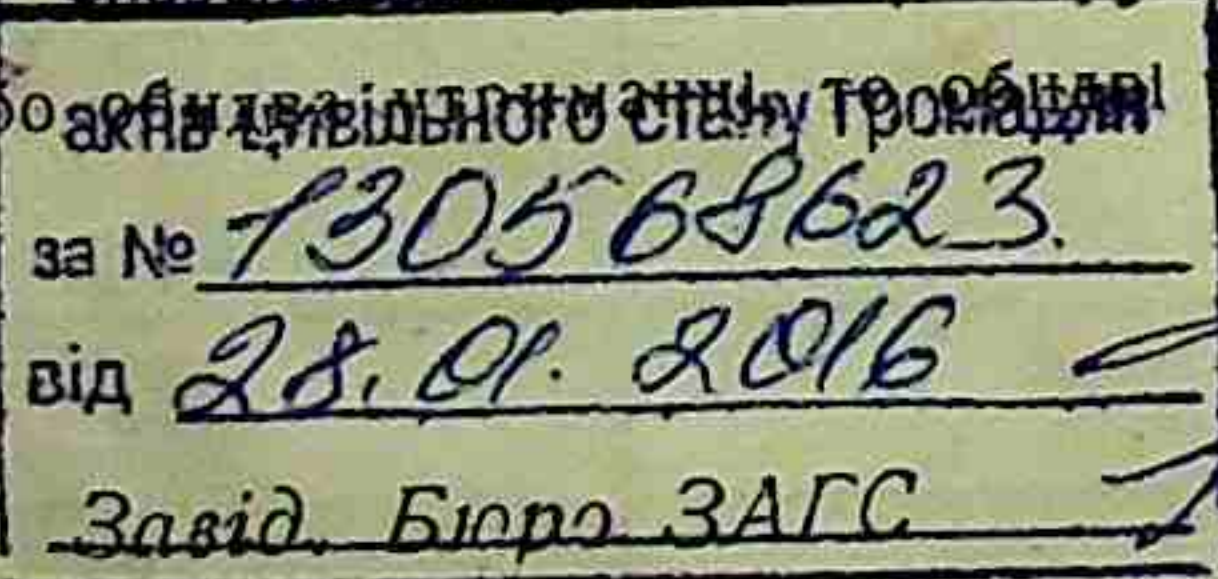 актів цивільного стану громадян
за № 130568623.
від 28.01.2016
Завід. Бюро ЗАГС